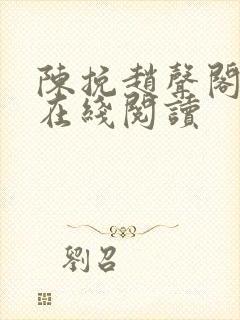 陳挩趙聲閣
在綫閱讀
劉召